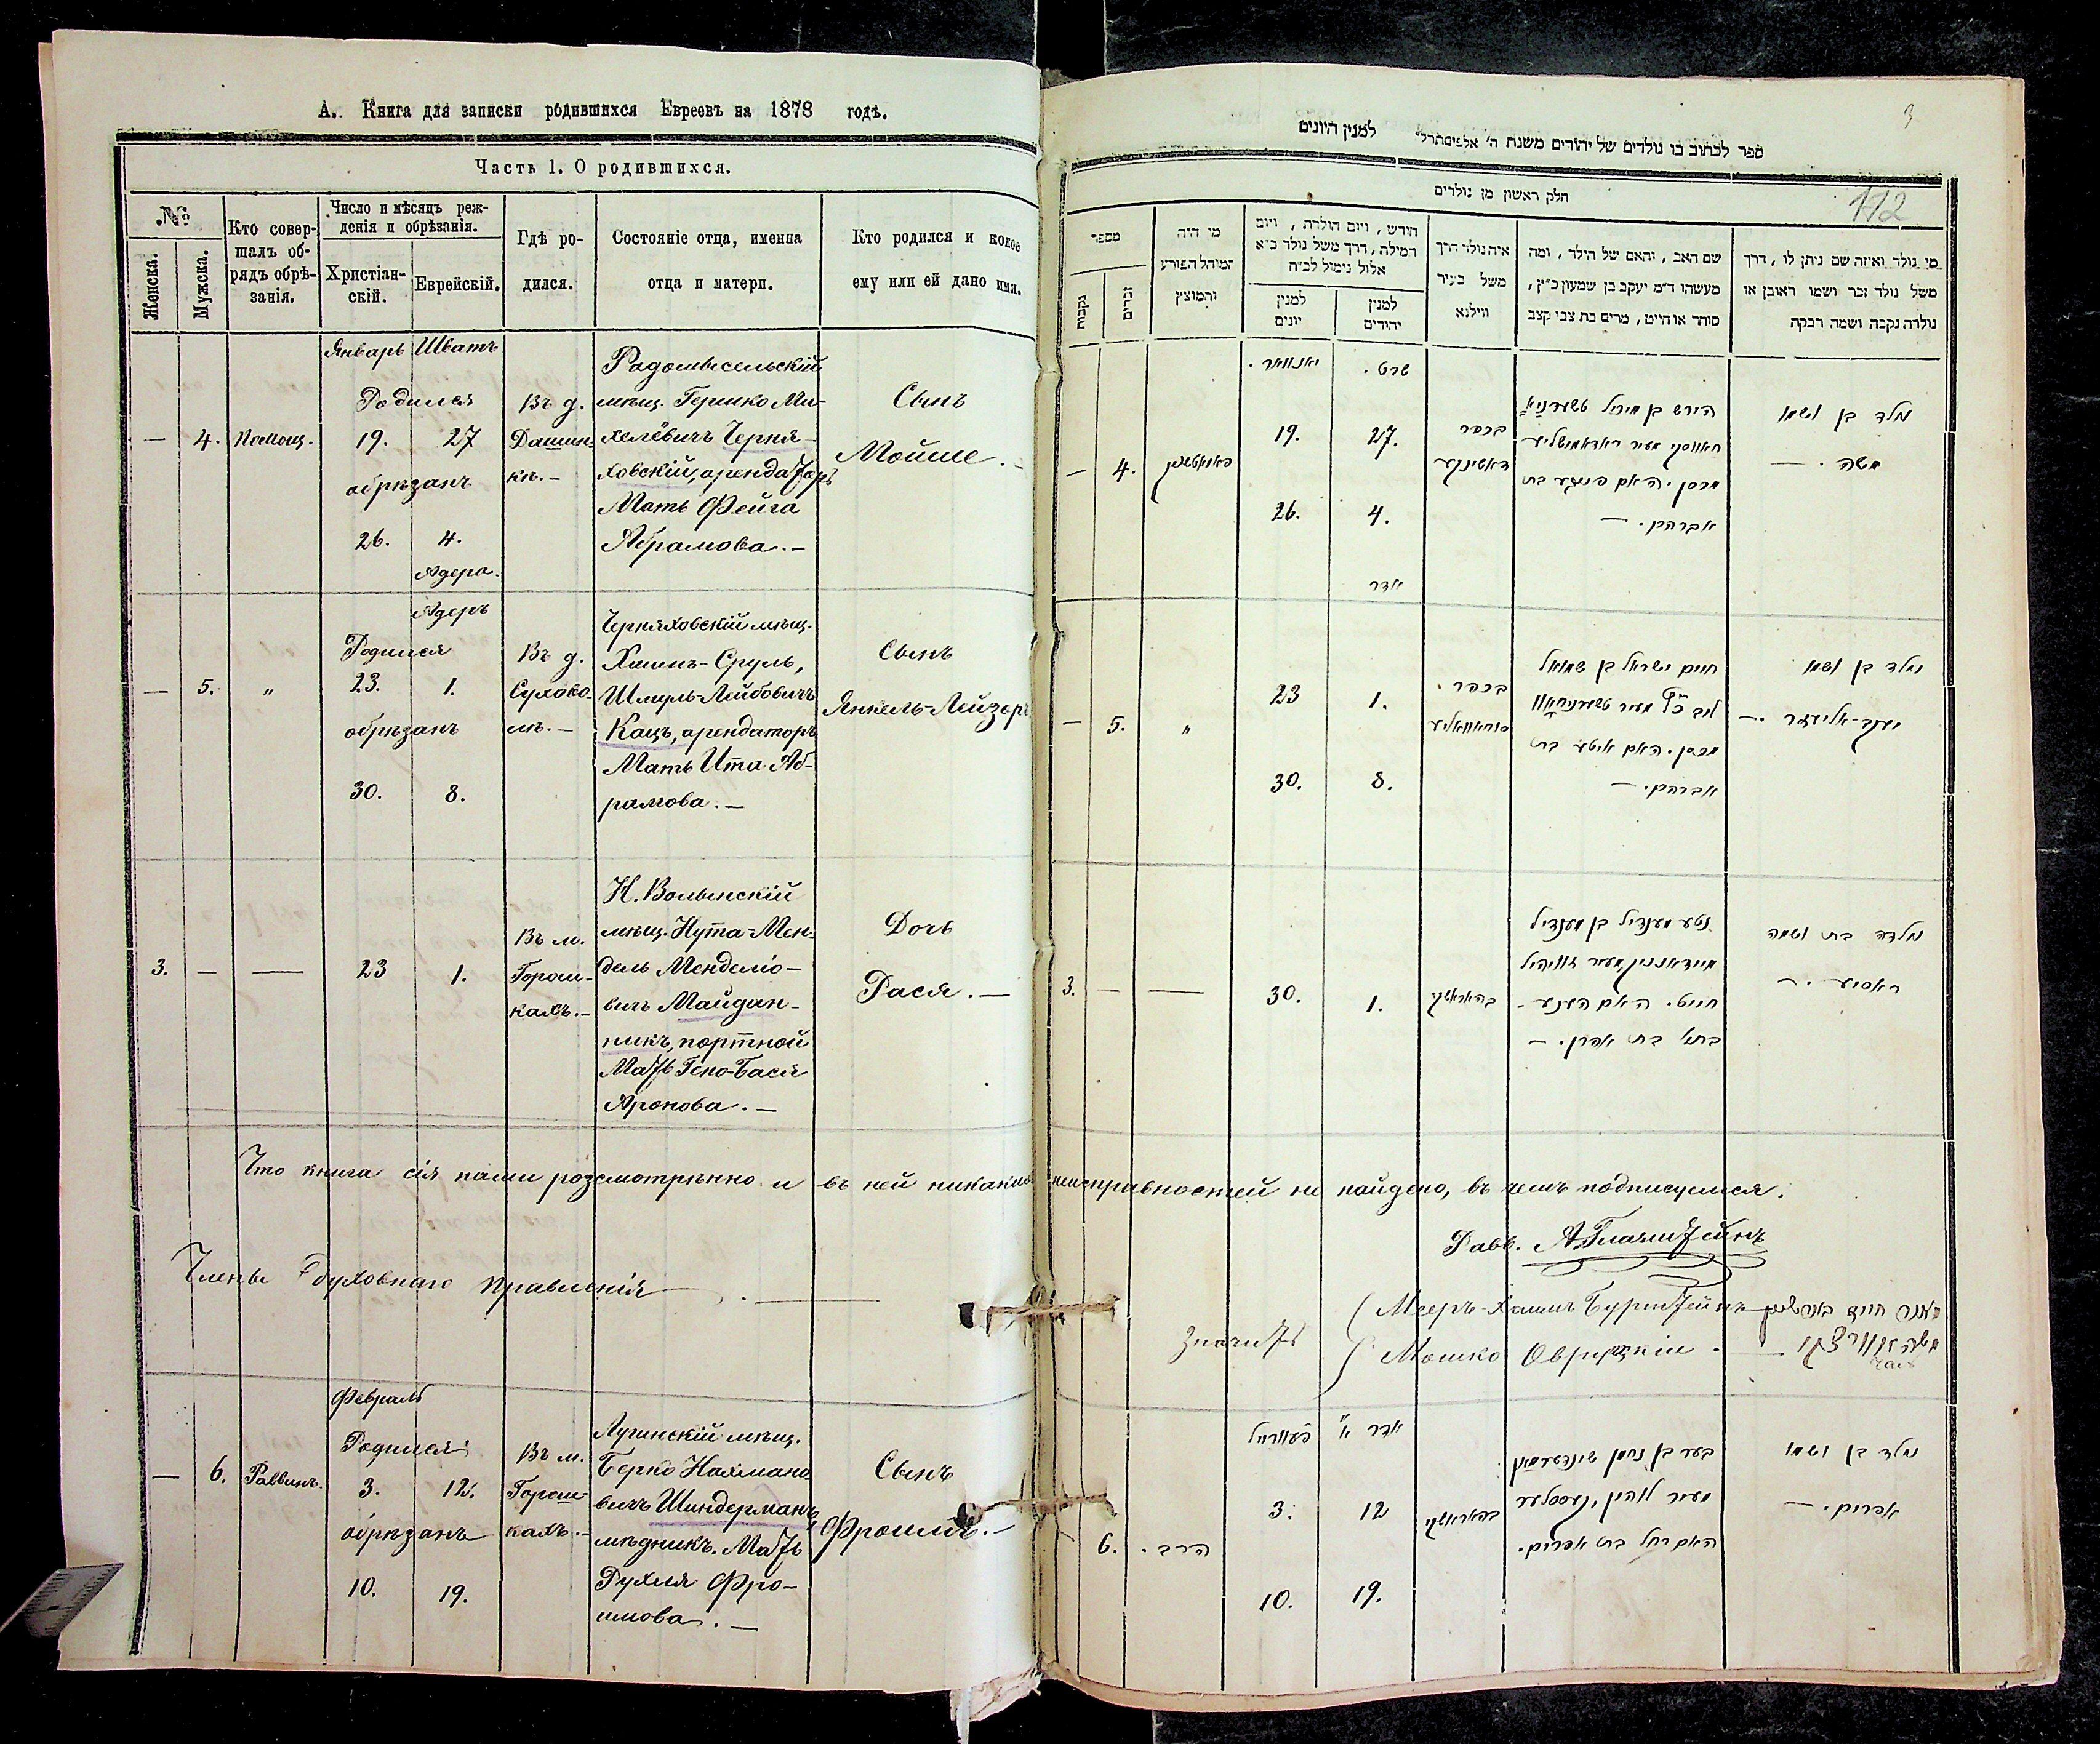 А. Книга для записки родившихся Евреевъ на 1878 годъ.
Часть 1. О родившихся.
№
Женска.
Мужска.
Кто совер-
шалъ об-
рядъ обрѣ-
занія.
Число и мѣсяцъ реж-
денія и обрѣзанія.
Христіан-
скій.
Еврейскій.
Гдѣ ро-
дился.
Состояніе отца, имена
отца и матери.
Кто родился и какое
ему или ей дано имя.
Январь Шватъ
— 4. Помощ.
Родился
19. 27
обрѣзанъ
26. 4.
Адера.
Въ д.
Дашин-
кѣ.—
Радомысельскій
мѣщ. Гершко Ми-
хелёвичъ Черня-
ховскій, арендаторъ
Мать Фейга
Абрамова.—
Сынъ
Мойше.—
Адеръ
— 5. „
Родился
23. 1.
обрѣзанъ
30. 8.
Въ д.
Сухово-
лѣ.—
Черняховскій мѣщ.
Хаимъ-Сруль,
Шмуль-Лейбовичъ
Кацъ, арендаторъ
Мать Ита Аб-
рамова.—
Сынъ
Янкель-Лейзоръ
3. — — 23 1.
Въ м.
Горош-
кахъ.—
Н. Волынскій
мѣщ. Нута-Мен-
дель Менделіо-
вичъ Майдан-
никъ, портной
Мать Гено-Бася
Аронова.—
Дочь
Рася.—
Что книга сія нами розсмотрѣнно и въ ней никакихъ неисправностей не найдено, въ чемъ подписуемся.
Равв. А. Глазштейнъ
Члены духовнаго правленія
Значитъ
Мееръ-Хаимъ Бурштейнъ
Мошко Овруцкій.
Февраль
— 6. Раввинъ.
Родился
3. 12.
обрѣзанъ
10. 19.
Въ м.
Горош-
кахъ.—
Лугинскій мѣщ.
Берко Нахмано-
вичъ Шиндерманъ,
мѣдникъ. Мать
Рухля Фро-
имова.—
Сынъ
Фроимъ.—
3
112
ספר לכתוב בו נולדים של יהודים משנת ה' למנין היונים
חלק ראשון מן נולדים
מספר
נקבות
זכרים
מי היה
המוהל הפורע
והמוצץ
חודש, ויום הולדת, ויום
המילה, דרך משל נולד כ״א
אלול נימול לכ״ח
למנין
יונים
למנין
יהודים
איה נולד דרך
משל בעיר
ווילנא
שם האב, והאם של הילד, ומה
מעשהו ד״מ יעקב בן שמעון כ״ץ,
סוחר או חייט, מרים בת צבי קצב
מי נולד ואיזה שם ניתן לו, דרך
משל נולד זכר ושמו ראובן או
נולדה נקבה ושמה רבקה
יאנוואר. שבט.
— 4.
19. 27.
26. 4.
אדר
בכפר
דאשינקע
אברהם.—
נולד בן ושמו
משה.—
— 5. „
23 1.
30. 8.
בכפר.
חיים ישראל בן שמואל
האם איטע בת
אברהם.—
נולד בן ושמו
יעקב-אליעזר.—
3. — — 30. 1.
נטע מענדיל בן מענדיל
חייט. האם הענע-
בתי׳ בת אהרן.—
נולדה בת ושמה
ראסיע.—
אדר א״
6. הרב.
3. 12
10. 19.
בער בן נחמן שינדערמאן
האם רחל בת אפרים.
נולד בן ושמו
אפרים.—